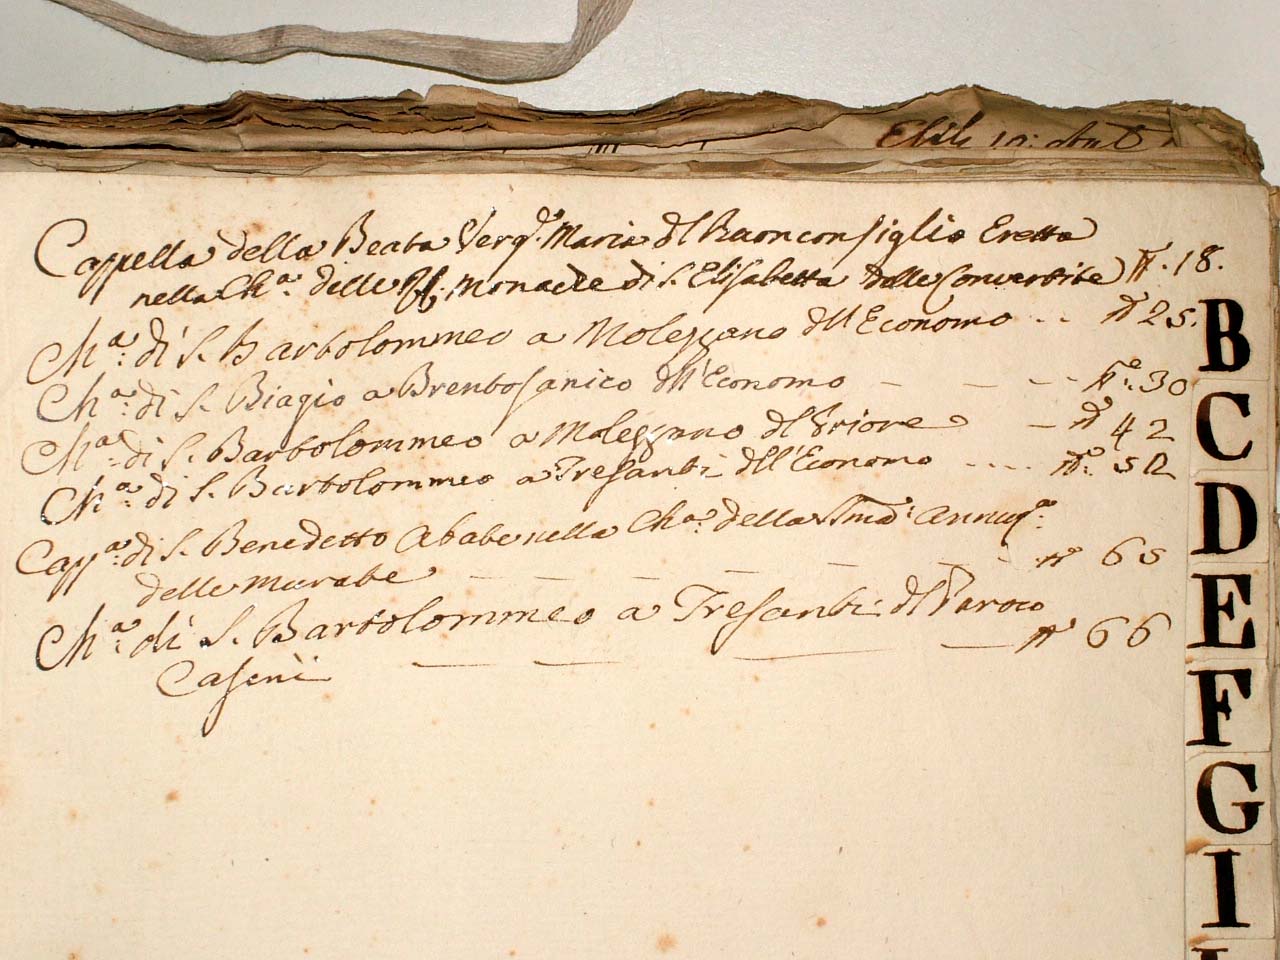 Cappella della Beata Verg.e Maria dl Buonconsiglio Eretta
nella Ch.a delle RR. Monache di S. Elisabetta dalle Convertite n.o 18.
Ch.a di S. Bartolommeo a Molezzano dll'Economo n.o 25.
B
Ch.a di S. Biagio a Brentosanico dll'Economo n.o 30
Ch.a di S. Bartolommeo a Molezzano dl Priore n.o 42
C
Ch.a di S. Bartolommeo a Tresanti dll'Economo n.o 52
D
Capp.a di S. Benedetto Abate nella Ch.a della SSma Annuz.a
delle Murate n.o 65
E
Ch.a di S. Bartolommeo a Tresanti dl Paroco n.o 66
Casini
F
G
I